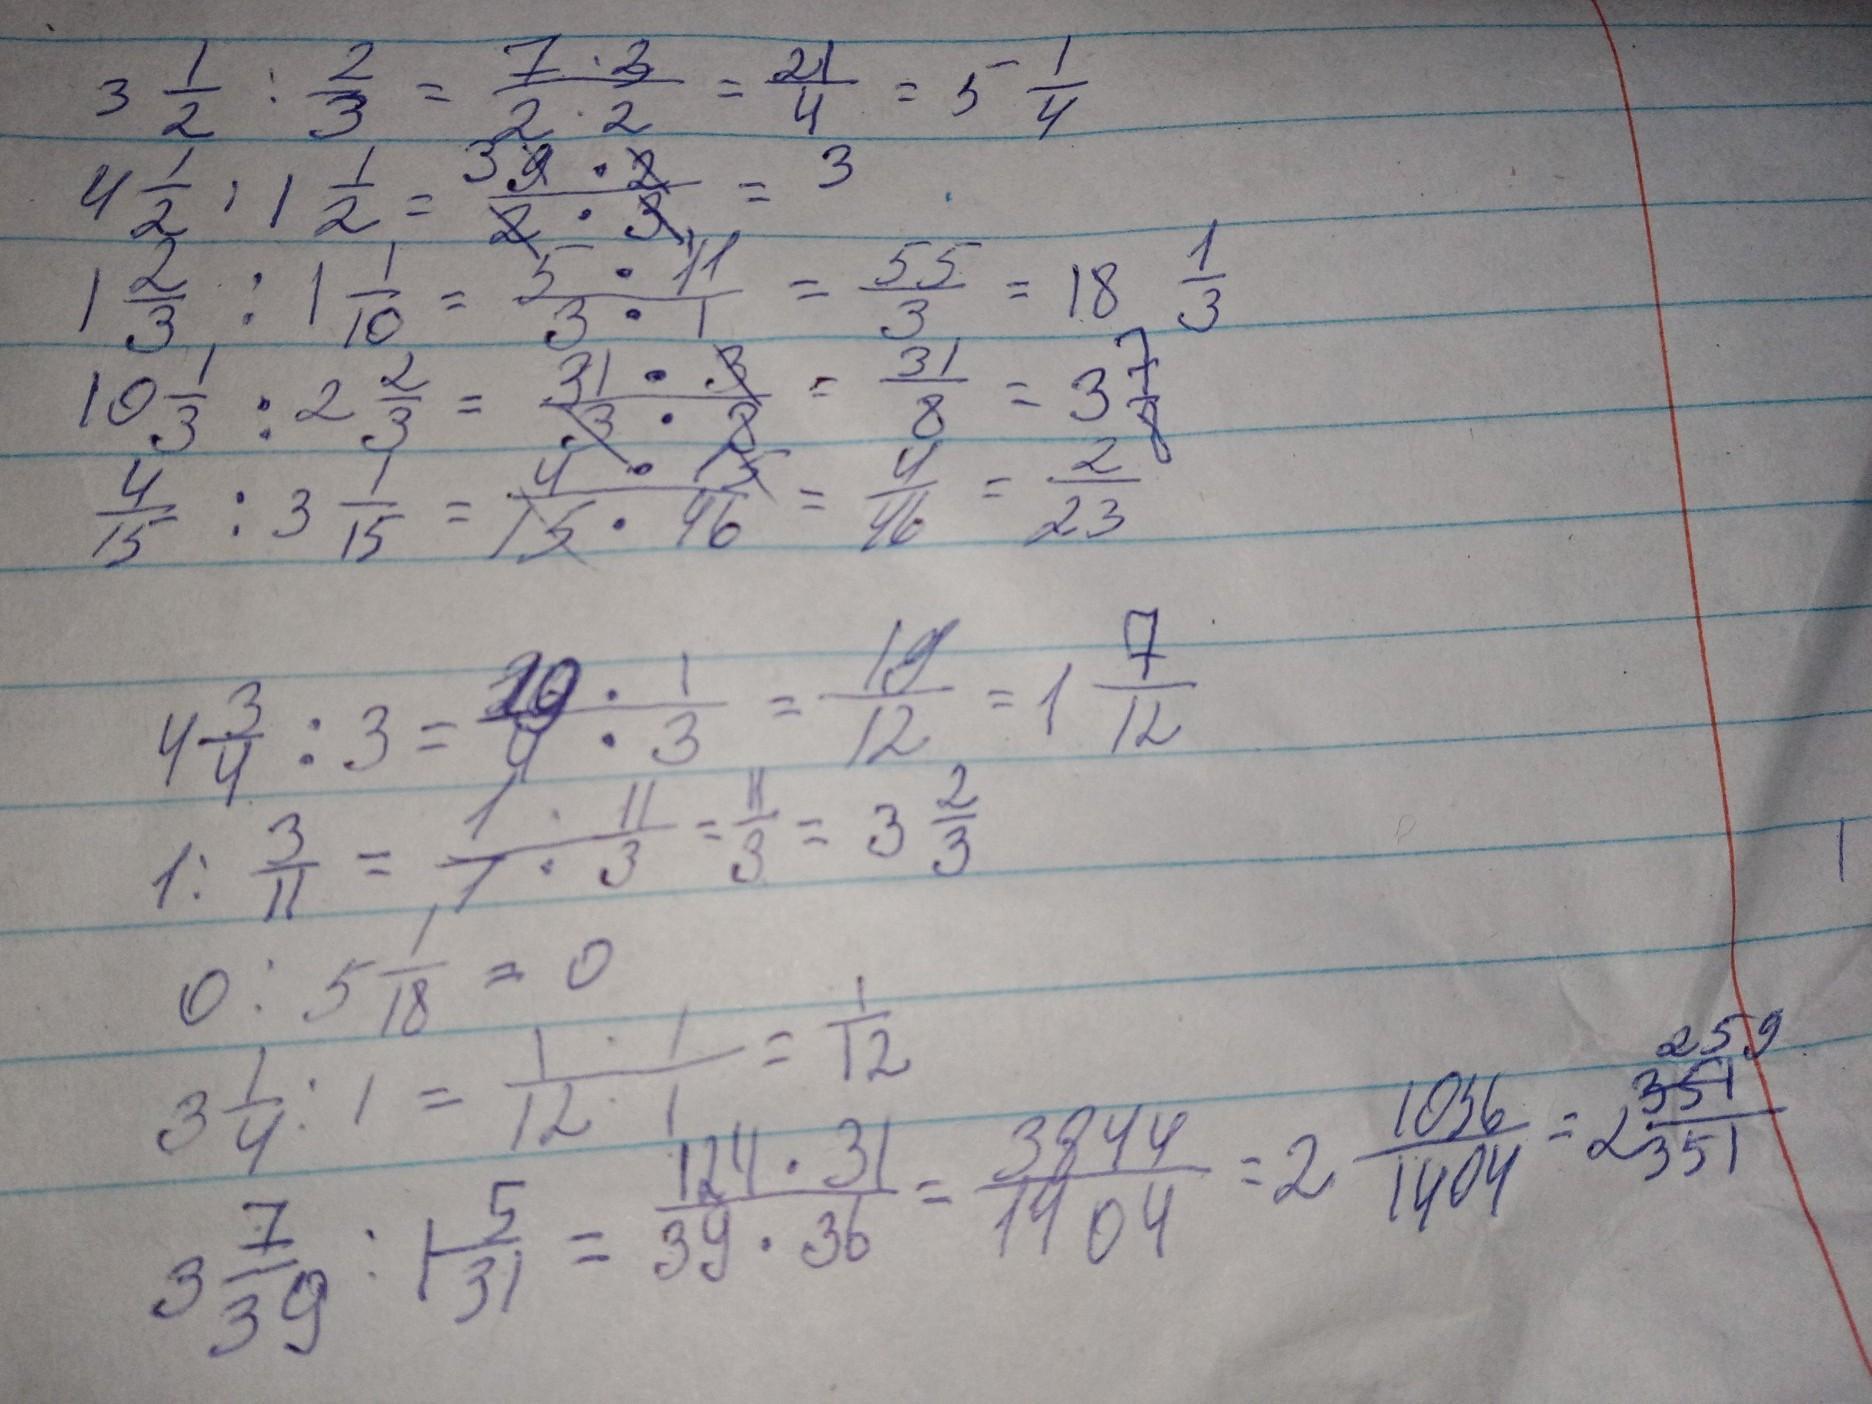 3 1/2 : 2/3 = 7·3/2·2 = 21/4 = 5 1/4
4 1/2 : 1 1/2 = 3 9·2/2·3 = 3
1 2/3 : 1 1/10 = 5·11/3·1 = 55/3 = 18 1/3
10 1/3 : 2 2/3 = 31·3/3·8 = 31/8 = 3 7/8
4/15 : 3 1/15 = 4·15/15·46 = 4/46 = 2/23
4 3/4 : 3 = 19·1/4·3 = 19/12 = 1 7/12
1 : 3/11 = 1·11/1·3 = 11/3 = 3 2/3
0 : 5 1/18 = 0
3 1/4 : 1 = 1·1/12·1 = 1/12
3 7/39 : 1 5/31 = 124·31/39·36 = 3844/1404 = 2 1036/1404 = 2 259/351